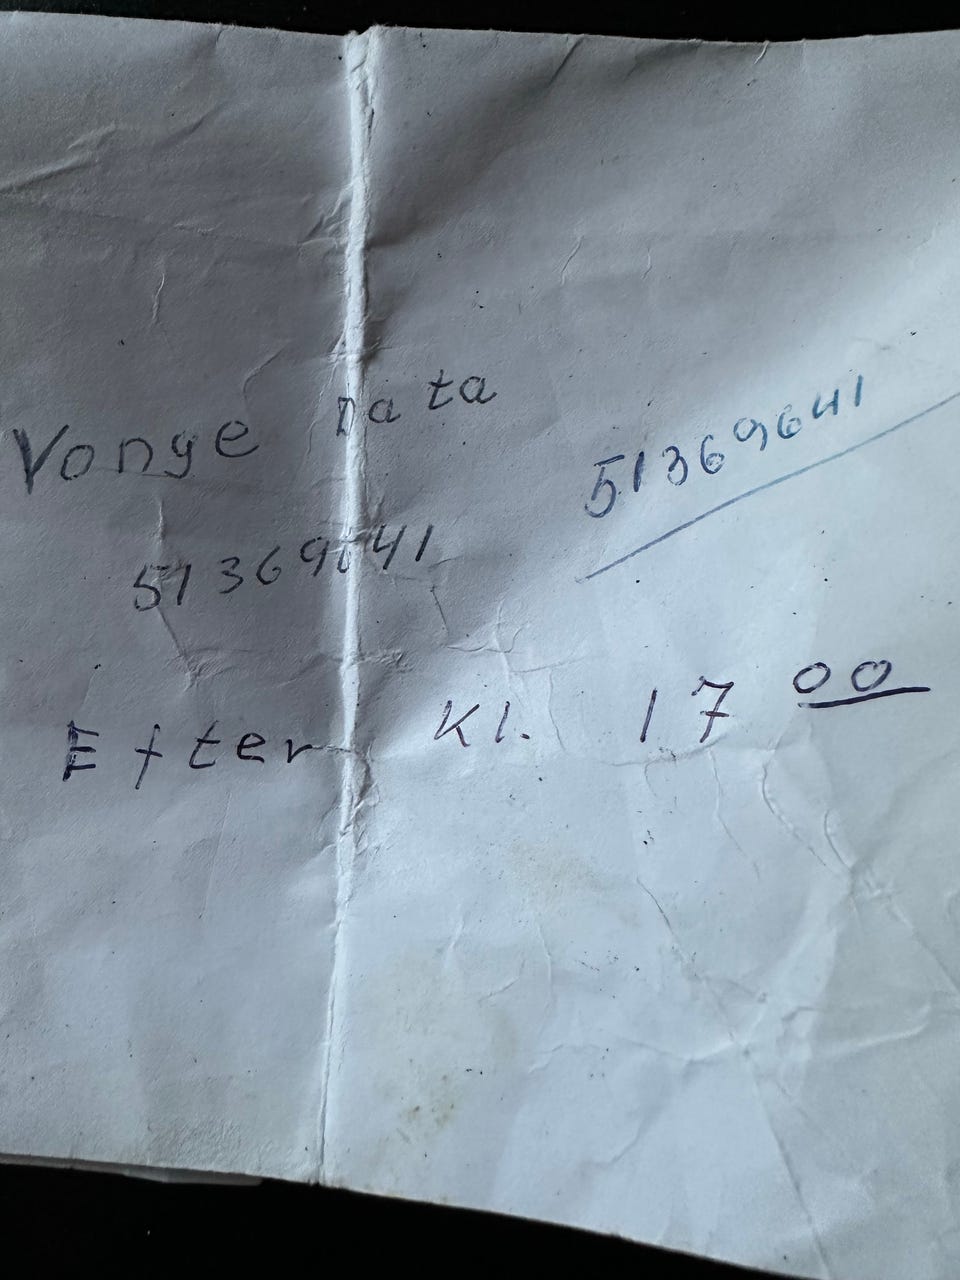 Vonge Data
51369641
51369641
Efter Kl. 17 00